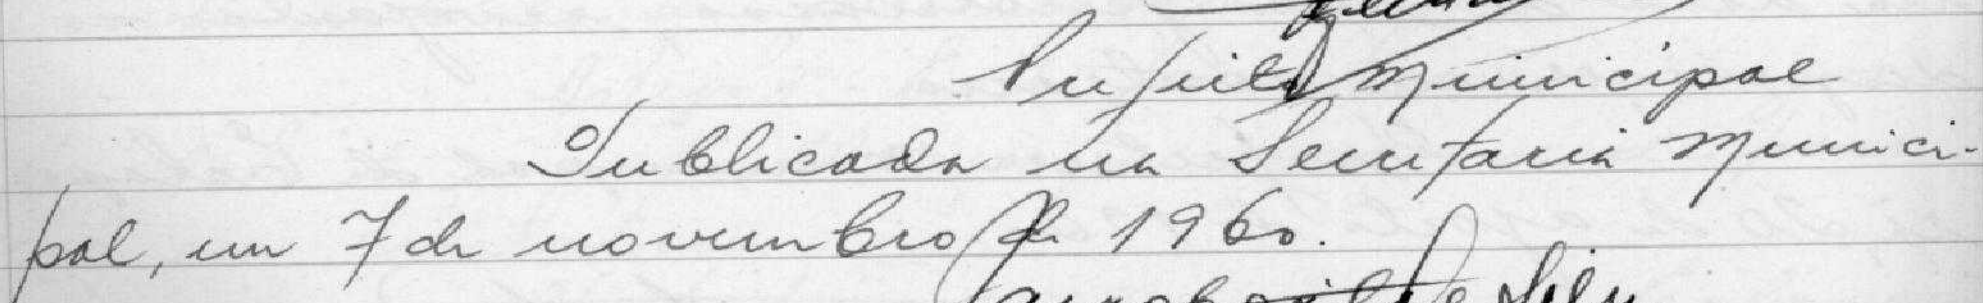 Prefeito Municipal
Publicada na Secretaria Munici-
pal, em 7 de novembro de 1960.